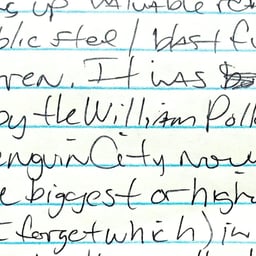 s up valuable re
blic steel / blast fu
ren. It was
by the William Poll
enguin City now
e biggest or high
I forget which) in